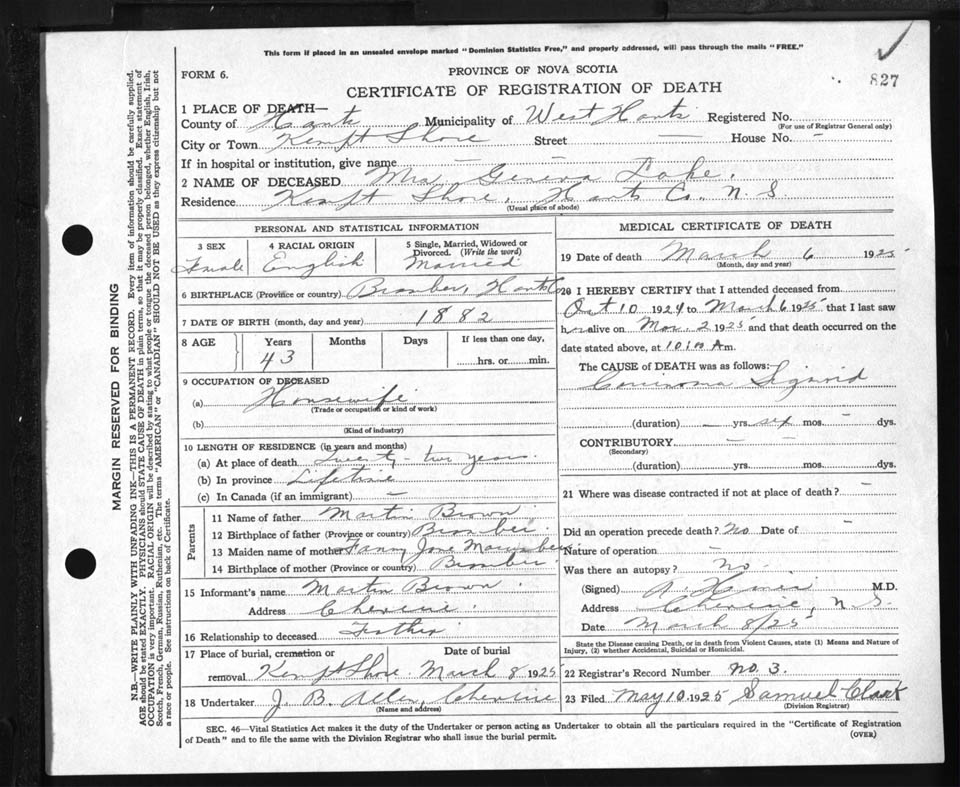 This form if placed in an unsealed envelope marked "Dominion Statistics Free," and properly addressed, will pass through the mails "FREE."
827
FORM 6.
PROVINCE OF NOVA SCOTIA
CERTIFICATE OF REGISTRATION OF DEATH
1 PLACE OF DEATH—
County of Hants Municipality of West Hants Registered No.
(For use of Registrar General only)
City or Town Kempt Shore Street — House No. —
If in hospital or institution, give name — —
2 NAME OF DECEASED Mrs Geneva Lake.
Residence Kempt Shore, Hants Co. N. S.
(Usual place of abode)
PERSONAL AND STATISTICAL INFORMATION
3 SEX 4 RACIAL ORIGIN 5 Single, Married, Widowed or Divorced. (Write the word)
Female English Married
6 BIRTHPLACE (Province or country) Hants Co
7 DATE OF BIRTH (month, day and year) 1882
8 AGE Years Months Days If less than one day,
43 hrs. or min.
9 OCCUPATION OF DECEASED
(a) Housewife
(Trade or occupation or kind of work)
(b)
(Kind of industry)
10 LENGTH OF RESIDENCE (in years and months)
(a) At place of death Twenty-two years.
(b) In province Lifetime
(c) In Canada (if an immigrant) —
Parents
11 Name of father Martin Brown
12 Birthplace of father (Province or country)
13 Maiden name of mother Fanny Jane
14 Birthplace of mother (Province or country)
15 Informant's name Martin Brown.
Address Cheverie.
16 Relationship to deceased Father
17 Place of burial, cremation or removal Date of burial
Kempt Shore. March 8, 1925
18 Undertaker J. B. Allen, Cheverie
(Name and address)
MEDICAL CERTIFICATE OF DEATH
19 Date of death March 6 1925
(Month, day and year)
20 I HEREBY CERTIFY that I attended deceased from
Oct 10 1924 to March 6 1925 that I last saw
her alive on Mar. 2 1925 and that death occurred on the
date stated above, at 10:00 A m.
The CAUSE of DEATH was as follows:
Carcinoma Sigmoid
(duration) — yrs. six mos. — dys.
CONTRIBUTORY — —
(Secondary)
(duration) yrs. mos. dys.
21 Where was disease contracted if not at place of death? —
Did an operation precede death? No Date of —
Nature of operation —
Was there an autopsy? No.
(Signed) M.D.
Address Cheverie, N.S.
Date March 8/25
State the Disease causing Death, or in death from Violent Causes, state (1) Means and Nature of Injury, (2) whether Accidental, Suicidal or Homicidal.
22 Registrar's Record Number No. 3.
23 Filed May 10 1925 Samuel Clark
(Division Registrar)
SEC. 46—Vital Statistics Act makes it the duty of the Undertaker or person acting as Undertaker to obtain all the particulars required in the "Certificate of Registration
of Death" and to file the same with the Division Registrar who shall issue the burial permit.
(OVER)
MARGIN RESERVED FOR BINDING
N.B.—WRITE PLAINLY WITH UNFADING INK—THIS IS A PERMANENT RECORD. Every item of information should be carefully supplied.
AGE should be stated EXACTLY. PHYSICIANS should STATE CAUSE OF DEATH in plain terms, so that it may be properly classified. Exact statement of
OCCUPATION is very important. RACIAL ORIGIN will be described by stating to what people or tongue the deceased person belonged, whether English, Irish,
Scotch, French, German, Russian, Ruthenian, etc. The terms "AMERICAN" or "CANADIAN" SHOULD NOT BE USED as they express citizenship but not
a race or people. See instructions on back of Certificate.